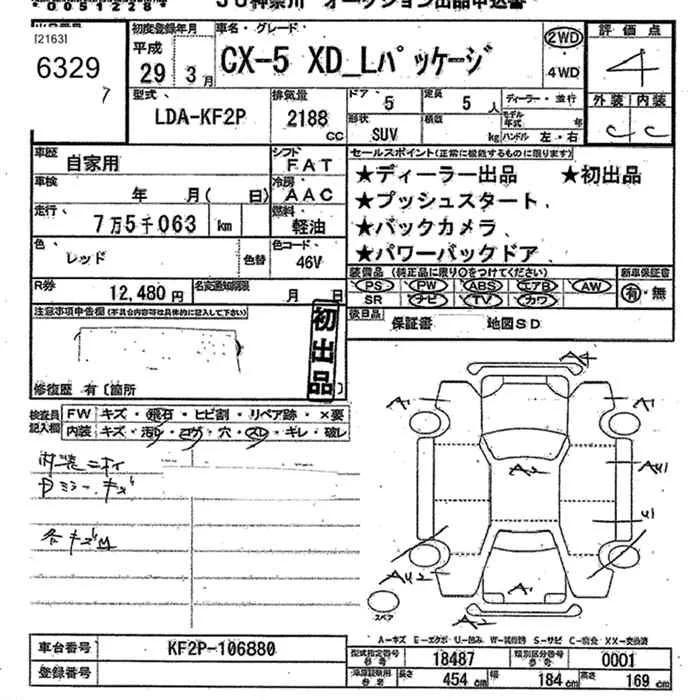 00512284
JU神奈川 オークション出品申込書
[2163]
6329
7
初度登録年月
平成
29年 3月
車名・グレード
CX-5 XD_Lパッケージ
2WD
4WD
評価点
4
外装 内装
C C
型式
LDA-KF2P
排気量
2188
cc
ドア 5
定員 5人
形状
SUV
積載 kg
ディーラー・並行
モデル年式 年
ハンドル 左・右
車歴
自家用
シフト
FAT
車検
年 月( 日)
冷房
AAC
走行
7万5千063 km
燃料
軽油
色
レッド
色替
色コード
46V
R券
12,480円
名変通知期限
月 日
セールスポイント(正常に機能するものに限ります)
★ディーラー出品 ★初出品
★プッシュスタート
★バックカメラ
★パワーバックドア
装備品(純正品に限り○をつけてください)
PS PW ABS エアB AW
SR ナビ TV カワ
新車保証書
有・無
後日品
保証書 地図SD
注意事項申告欄(不具合内容等は具体的に記入して下さい)
初出品
修復歴 有〔箇所
検査員記入欄
FW キズ・飛石・ヒビ割・リペア跡・×要
内装 キズ・汚レ・コゲ・穴・スレ・キレ・破レ
内装ニオイ
Dミラーキズ
各キズM
A4
A1
A1
A2
AU1
U1
AU2
A1
A2
スペア
A-キズ E-エクボ U-凹み W-補修跡 S-サビ C-腐食 XX-交換済
車台番号
KF2P-106880
登録番号
型式指定番号
参考
18487
類別区分番号
参考
0001
車庫証明用
参考
長さ 454 cm 幅 184 cm 高さ 169 cm